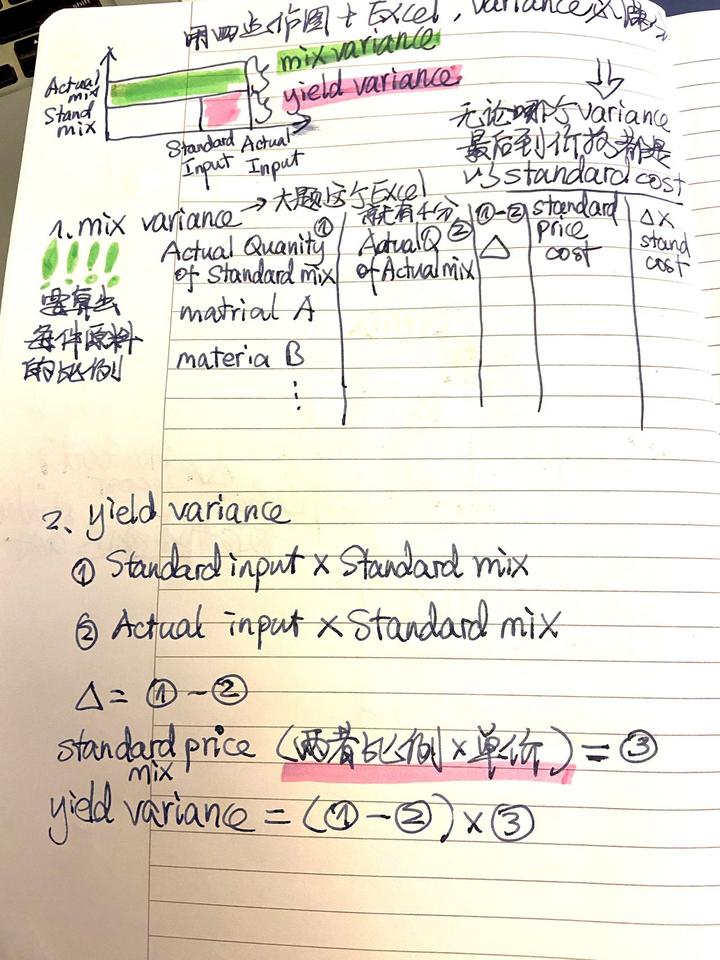 用四步作图 + Excel, variance必
mix variance
yield variance
Actual
mix
Stand
mix
Standard Actual
Input Input
无论哪个variance
最后到价格都是
v's standard cost
1. mix variance → 大题这个Excel
就有4分
!!!!
要算出
每件原料
的比例
Actual Quanity ①
of Standard mix
Actual Q ②
of Actual mix
①-②
△
standard
price
cost
△ X
stand
cost
matrial A
materia B
⋮
2. yield variance
① Standard input × Standard mix
② Actual input × Standard mix
△ = ① - ②
standard price (两者比例 × 单价) = ③
mix
yield variance = (① - ②) × ③